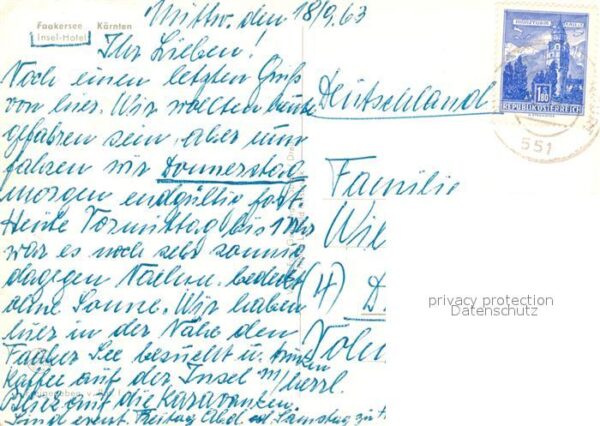 Mittw. den 18/9.63
Faakersee Kärnten
Insel-Hotel
Ihr Lieben!
Noch einen letzten Gruß
von hier. Wir wollten heute
gefahren sein, aber nun
fahren wir Donnerstag
morgen endgültig fort.
Heute Vormittag bis 1 Uhr
war es noch sehr sonnig
dagegen Nachm. bedeckt
ohne Sonne. Wir haben
hier in der Nähe den
Faaker See besucht u. trinken
Kaffee auf der Insel m/ herrl.
Blick auf die Karawanken.
Sind event. Freitag Abd. od. Samstag zu
Deutschland
Familie
Wie
(4) D
REPUBLIK ÖSTERREICH
S 1.80
551
privacy protection
Datenschutz